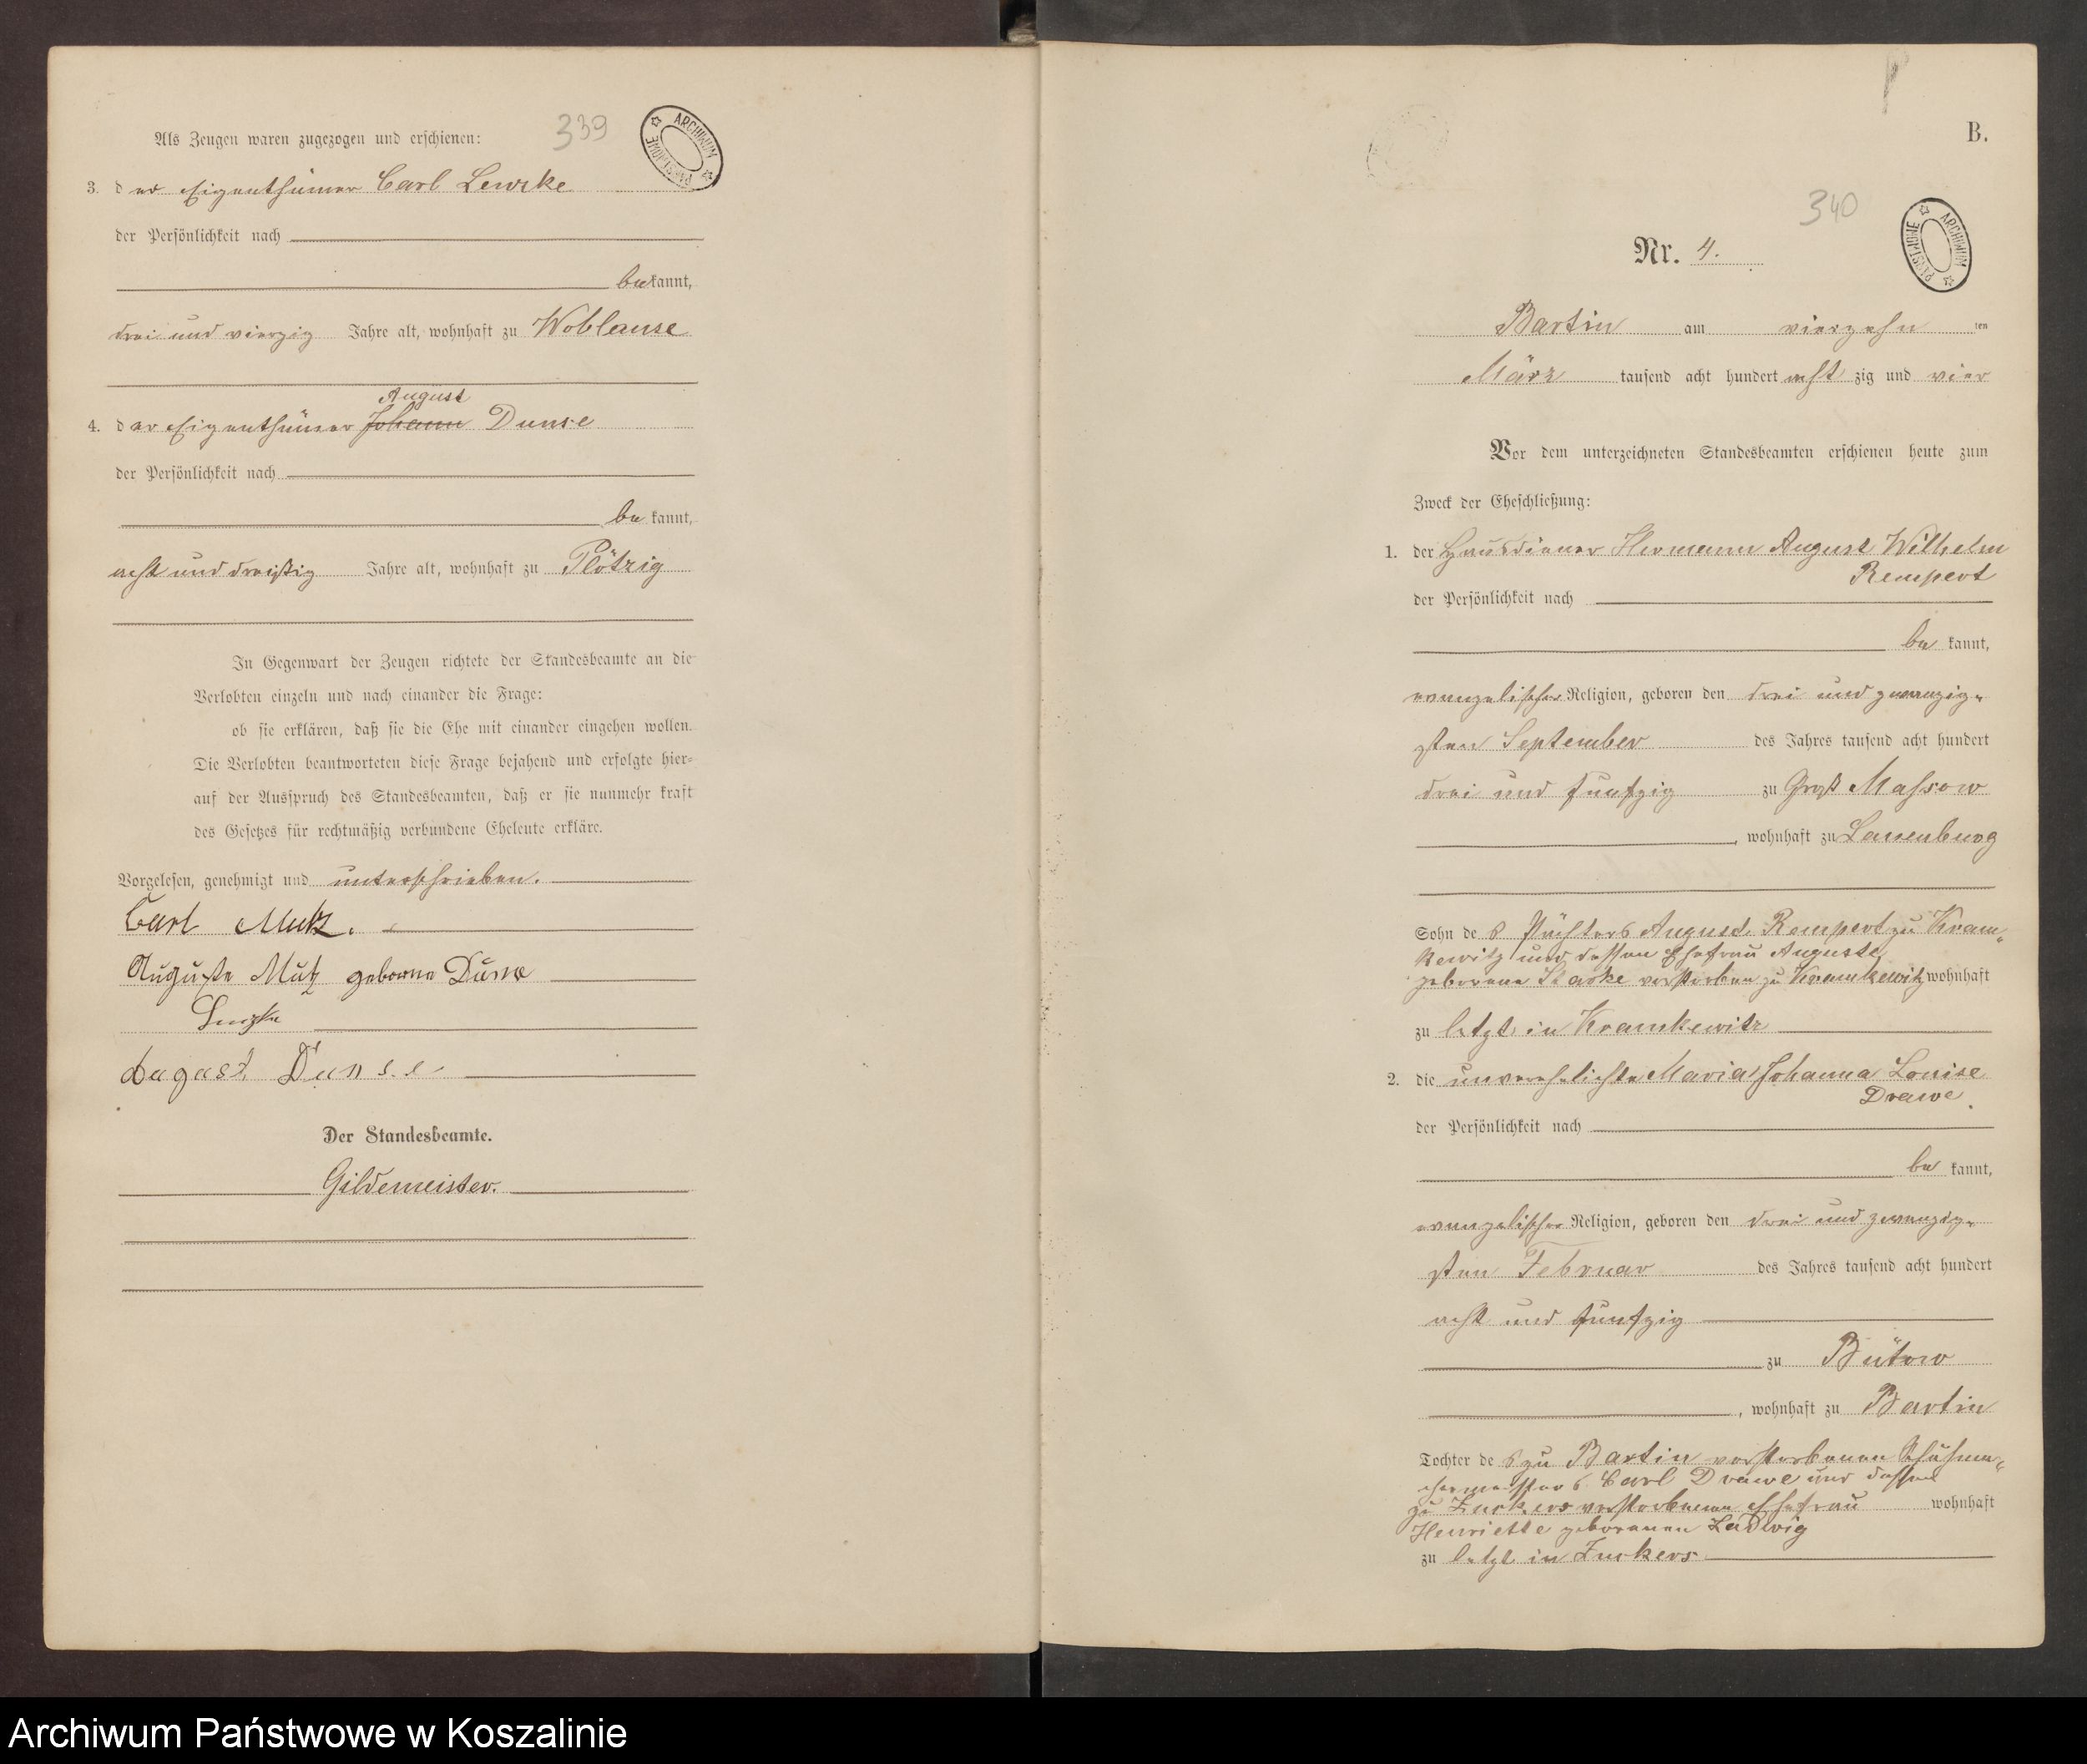 339
ARCHIWUM PAŃSTWOWE
Als Zeugen waren zugezogen und erschienen:
3. der Eigenthümer Carl Lewzke
der Persönlichkeit nach
bekannt,
drei und vierzig Jahre alt, wohnhaft zu Woblanse
August
4. der Eigenthümer Johann Dunse
der Persönlichkeit nach
bekannt,
acht und dreißig Jahre alt, wohnhaft zu Plötzig
In Gegenwart der Zeugen richtete der Standesbeamte an die
Verlobten einzeln und nach einander die Frage:
ob sie erklären, daß sie die Ehe mit einander eingehen wollen.
Die Verlobten beantworteten diese Frage bejahend und erfolgte hier-
auf der Ausspruch des Standesbeamten, daß er sie nunmehr kraft
des Gesetzes für rechtmäßig verbundene Eheleute erkläre.
Vorgelesen, genehmigt und unterschrieben.
Carl Mutz.
Auguste Mutz geborne Dunse
August Dunse
Der Standesbeamte.
Gildemeister.
B.
340
ARCHIWUM PAŃSTWOWE
Nr. 4.
Bartin am vierzehn ten
März tausend acht hundert acht zig und vier
Vor dem unterzeichneten Standesbeamten erschienen heute zum
Zweck der Eheschließung:
1. der Hausdiener Hermann August Wilhelm
Rempert
der Persönlichkeit nach
bekannt,
evangelischer Religion, geboren den drei und zwanzig-
sten September des Jahres tausend acht hundert
drei und funfzig zu Groß Massow
, wohnhaft zu Lauenburg
Sohn des Pächters August Rempert zu Kram-
kewitz und dessen Ehefrau Auguste
geborene verstorben zu Kramkewitz wohnhaft
zu letzt in Kramkewitz
2. die unverehelichte Maria Johanna Louise
Drawe.
der Persönlichkeit nach
bekannt,
evangelischer Religion, geboren den drei und zwanzig-
sten Februar des Jahres tausend acht hundert
acht und funfzig
zu Bütow
, wohnhaft zu Bartin
Tochter des zu Bartin verstorbenen Schuhma-
chermeisters Carl Drawe und dessen
zu Zuckers verstorbenen Ehefrau wohnhaft
Henriette geborenen Ladwig
zu letzt in Zuckers
Archiwum Państwowe w Koszalinie